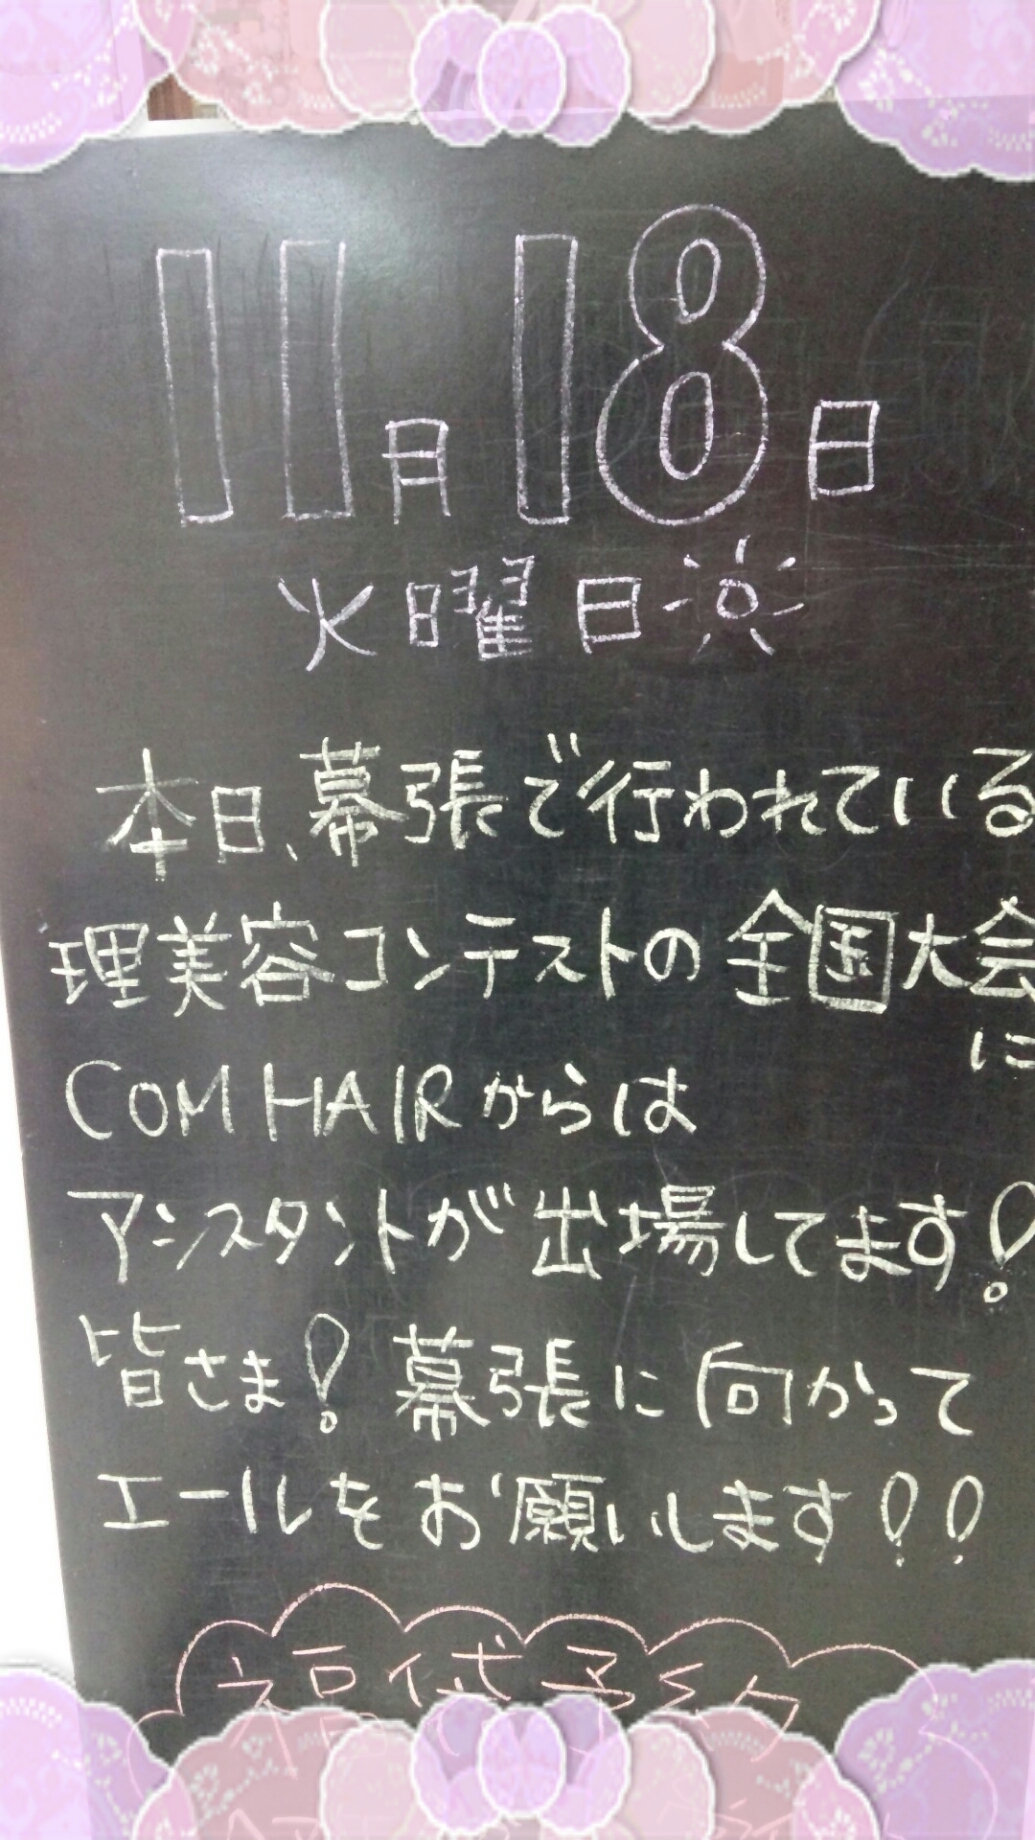 11月18日
火曜日
本日、幕張で行われている
理美容コンテストの全国大会
に
COM HAIRからは
アシスタントが出場してます!
皆さま!幕張に向かって
エールをお願いします!!
福袋予約